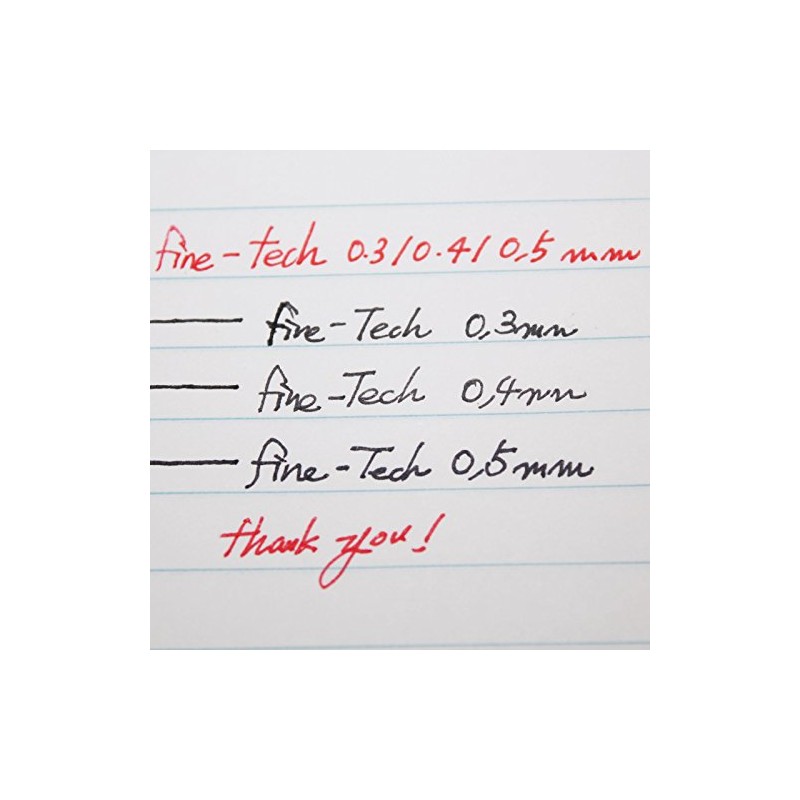 fine-tech 0.3/0.4/0,5 mm
fine-Tech 0,3mm
fine-Tech 0,4mm
fine-Tech 0,5mm
thank you!